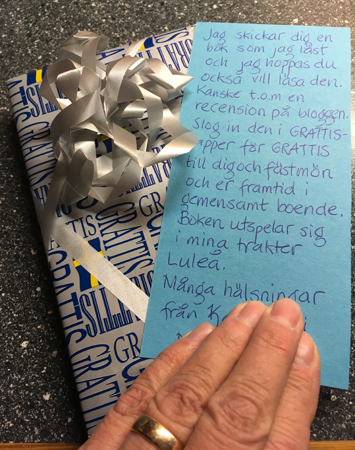 Jag skickar dig en
bok som jag läst
och jag hoppas du
också vill läsa den.
Kanske t.o.m en
recension på bloggen.
Slog in den i GRATTIS-
papper för GRATTIS
till dig och fästmön
och er framtid i
gemensamt boende.
Boken utspelar sig
i mina trakter
Luleå.
Många hälsningar
från K
GRATTIS
GRATTIS
GRATTIS
GRATTIS